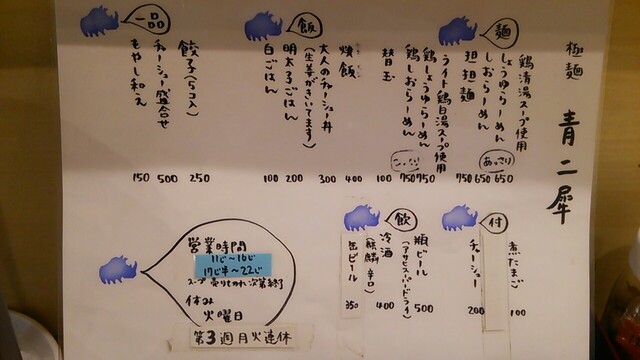 極麺 青二犀
麺
鶏清湯スープ使用
しょうゆらーめん 650
しおらーめん 650
あっさり
担担麺 750
ライト鶏白湯スープ使用
鶏しょうゆらーめん 750
鶏しおらーめん 750
替玉 100
飯
焼飯 400
大人のチャーシュー丼 300
(生姜がきいてます)
明太子ごはん 200
白ごはん 100
一品
餃子(5コ入) 250
チャーシュー盛合せ 500
もやし和え 150
付
煮たまご 100
チャーシュー 200
飲
瓶ビール 500
(アサヒスーパードライ)
冷酒 400
(麒麟辛口)
缶ビール 350
営業時間
11じ～16じ
17じ半～22じ
スープ売りきれ次第終了
休み
火曜日
第3週月火連休